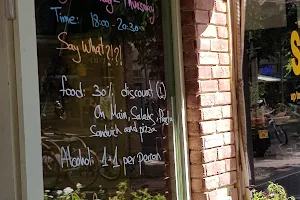 Thursday
Time: 18:00-20:30
Say What?!?!
food: 30% discount (!)
On Main, Salads,
Sandwich and pizza
Alcohol: 1+1 per person